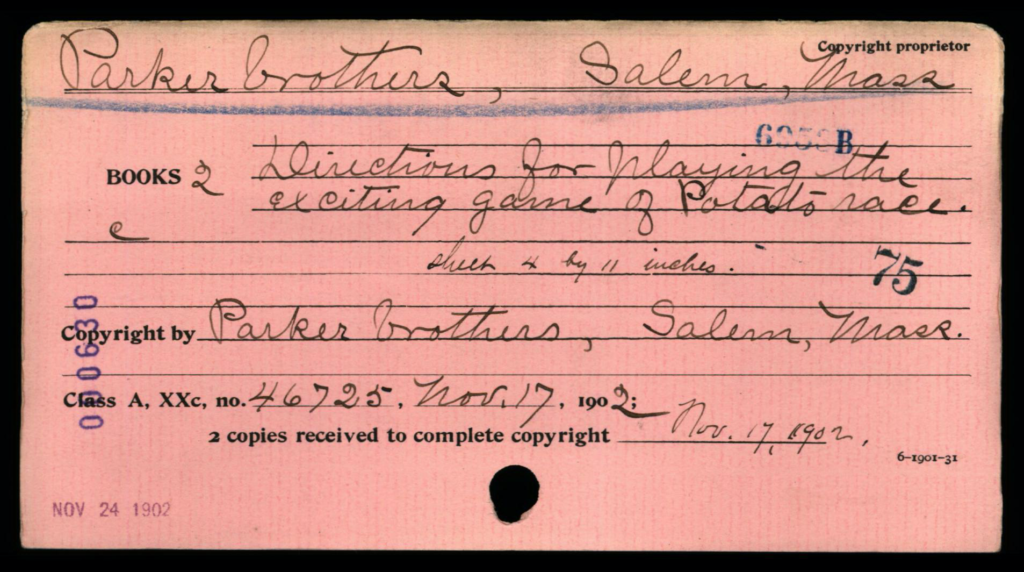 Copyright proprietor
Parker brothers, Salem, Mass
B
BOOKS 2 Directions for playing the
exciting game of Potato race.
c
sheet 4 by 11 inches.
75
Copyright by Parker brothers, Salem, Mass.
000630
Class A, XXc, no. 46725, Nov. 17, 1902;
2 copies received to complete copyright Nov. 17, 1902,
6-1901-31
NOV 24 1902